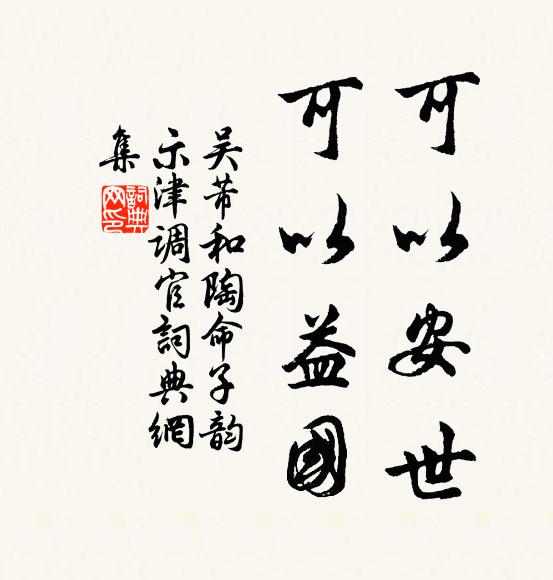 可以安世
可以益國
吴芾和陶命子韵
示津調官詞典網
集
詞典網印